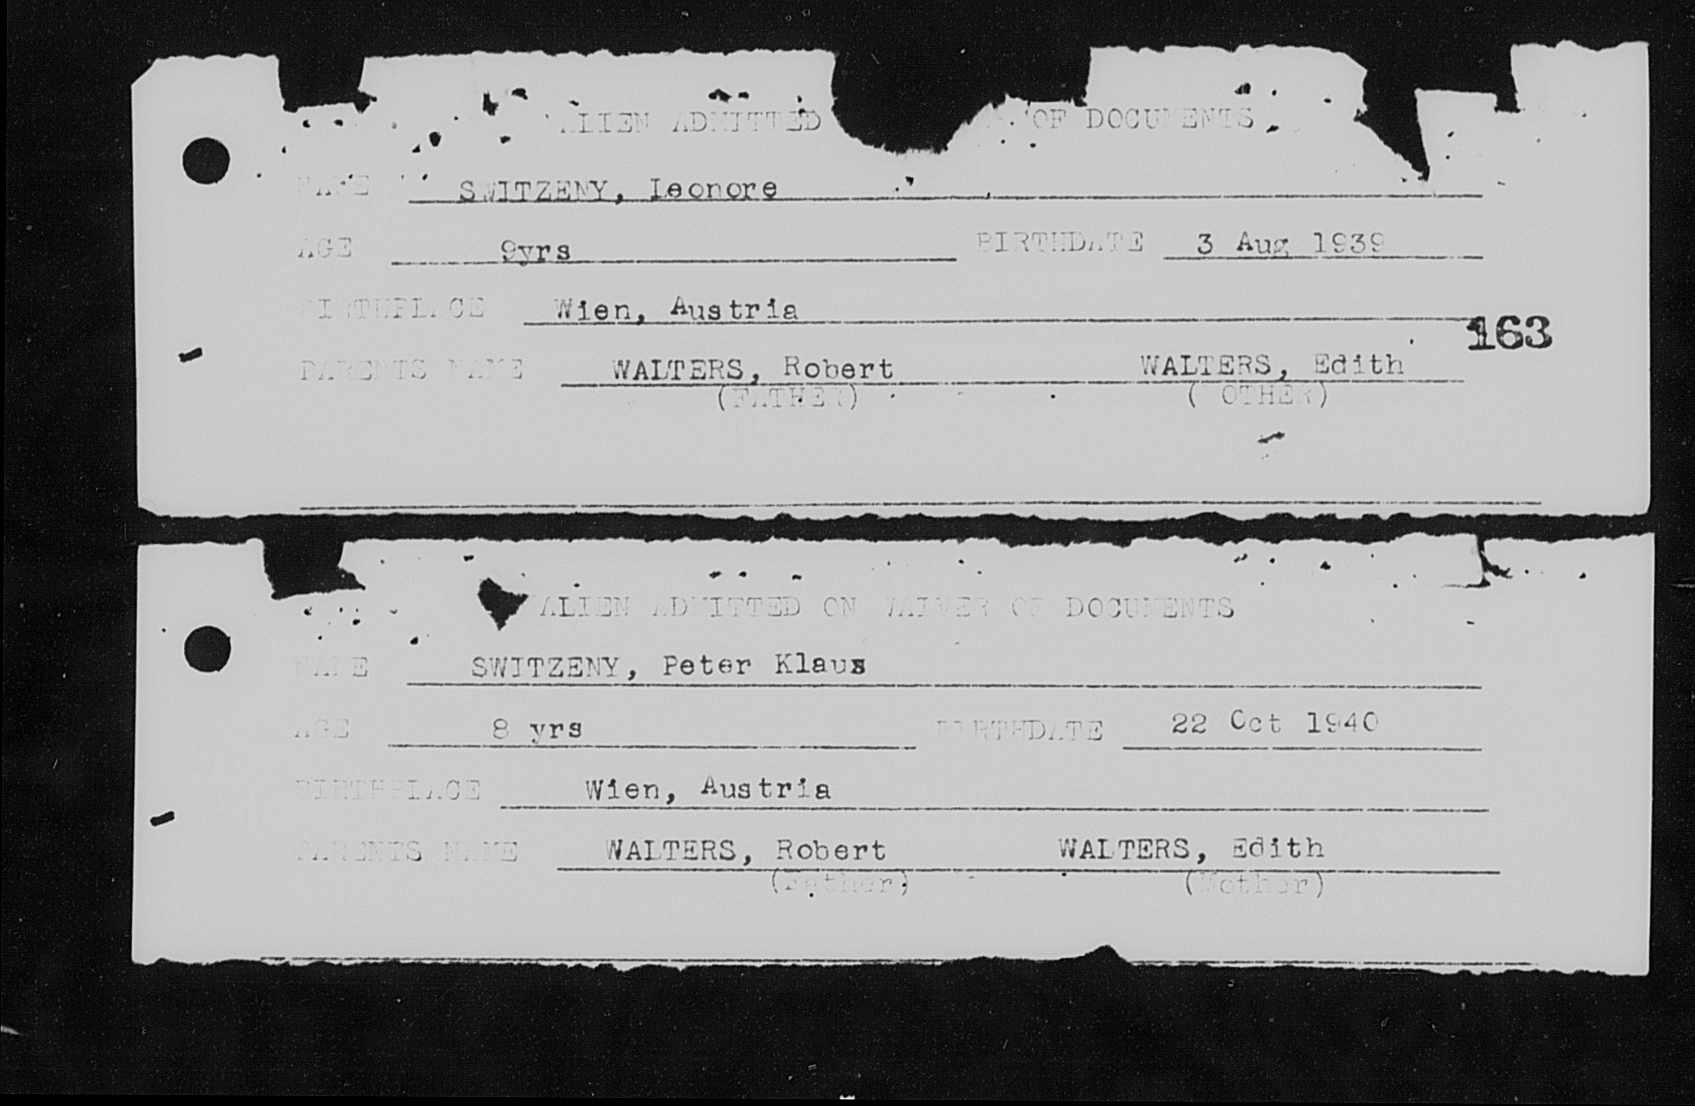 ALIEN ADMITTED OF DOCUMENTS
NAME SWITZENY, Leonore
AGE 9yrs BIRTHDATE 3 Aug 1939
BIRTHPLACE Wien, Austria
163
PARENTS NAME WALTERS, Robert WALTERS, Edith
(FATHER) (MOTHER)
ALIEN ADMITTED ON WAIVER OF DOCUMENTS
NAME SWITZENY, Peter Klaus
AGE 8 yrs BIRTHDATE 22 Oct 1940
BIRTHPLACE Wien, Austria
PARENTS NAME WALTERS, Robert WALTERS, Edith
(Father) (Mother)